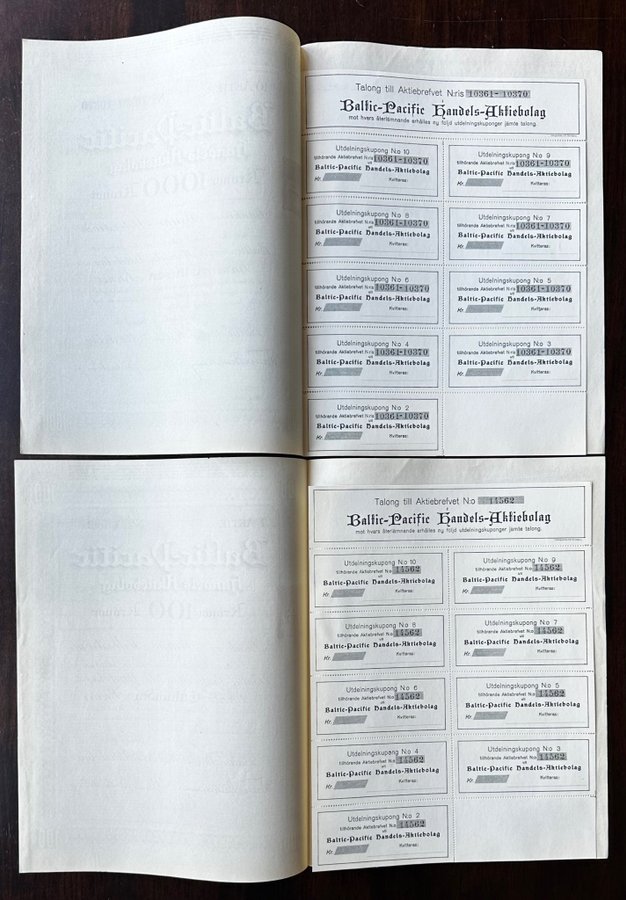 Talong till Aktiebrefvet N:ris 10361-10370
i
Baltic-Pacific Handels-Aktiebolag
mot hvars återlämnande erhålles ny följd utdelningskuponger jämte talong.
Utdelningskupong N:o 10
tillhörande Aktiebrefvet N:ris 10361-10370
uti
Baltic-Pacific Handels-Aktiebolag
Kr. Kvitteras:
Utdelningskupong N:o 9
tillhörande Aktiebrefvet N:ris 10361-10370
uti
Baltic-Pacific Handels-Aktiebolag
Kr. Kvitteras:
Utdelningskupong N:o 8
tillhörande Aktiebrefvet N:ris 10361-10370
uti
Baltic-Pacific Handels-Aktiebolag
Kr. Kvitteras:
Utdelningskupong N:o 7
tillhörande Aktiebrefvet N:ris 10361-10370
uti
Baltic-Pacific Handels-Aktiebolag
Kr. Kvitteras:
Utdelningskupong N:o 6
tillhörande Aktiebrefvet N:ris 10361-10370
uti
Baltic-Pacific Handels-Aktiebolag
Kr. Kvitteras:
Utdelningskupong N:o 5
tillhörande Aktiebrefvet N:ris 10361-10370
uti
Baltic-Pacific Handels-Aktiebolag
Kr. Kvitteras:
Utdelningskupong N:o 4
tillhörande Aktiebrefvet N:ris 10361-10370
uti
Baltic-Pacific Handels-Aktiebolag
Kr. Kvitteras:
Utdelningskupong N:o 3
tillhörande Aktiebrefvet N:ris 10361-10370
uti
Baltic-Pacific Handels-Aktiebolag
Kr. Kvitteras:
Utdelningskupong N:o 2
tillhörande Aktiebrefvet N:ris 10361-10370
uti
Baltic-Pacific Handels-Aktiebolag
Kr. Kvitteras:
Talong till Aktiebrefvet N:o 14562
i
Baltic-Pacific Handels-Aktiebolag
mot hvars återlämnande erhålles ny följd utdelningskuponger jämte talong.
Utdelningskupong N:o 10
tillhörande Aktiebrefvet N:o 14562
uti
Baltic-Pacific Handels-Aktiebolag
Kr. Kvitteras:
Utdelningskupong N:o 9
tillhörande Aktiebrefvet N:o 14562
uti
Baltic-Pacific Handels-Aktiebolag
Kr. Kvitteras:
Utdelningskupong N:o 8
tillhörande Aktiebrefvet N:o 14562
uti
Baltic-Pacific Handels-Aktiebolag
Kr. Kvitteras:
Utdelningskupong N:o 7
tillhörande Aktiebrefvet N:o 14562
uti
Baltic-Pacific Handels-Aktiebolag
Kr. Kvitteras:
Utdelningskupong N:o 6
tillhörande Aktiebrefvet N:o 14562
uti
Baltic-Pacific Handels-Aktiebolag
Kr. Kvitteras:
Utdelningskupong N:o 5
tillhörande Aktiebrefvet N:o 14562
uti
Baltic-Pacific Handels-Aktiebolag
Kr. Kvitteras:
Utdelningskupong N:o 4
tillhörande Aktiebrefvet N:o 14562
uti
Baltic-Pacific Handels-Aktiebolag
Kr. Kvitteras:
Utdelningskupong N:o 3
tillhörande Aktiebrefvet N:o 14562
uti
Baltic-Pacific Handels-Aktiebolag
Kr. Kvitteras:
Utdelningskupong N:o 2
tillhörande Aktiebrefvet N:o 14562
uti
Baltic-Pacific Handels-Aktiebolag
Kr. Kvitteras: